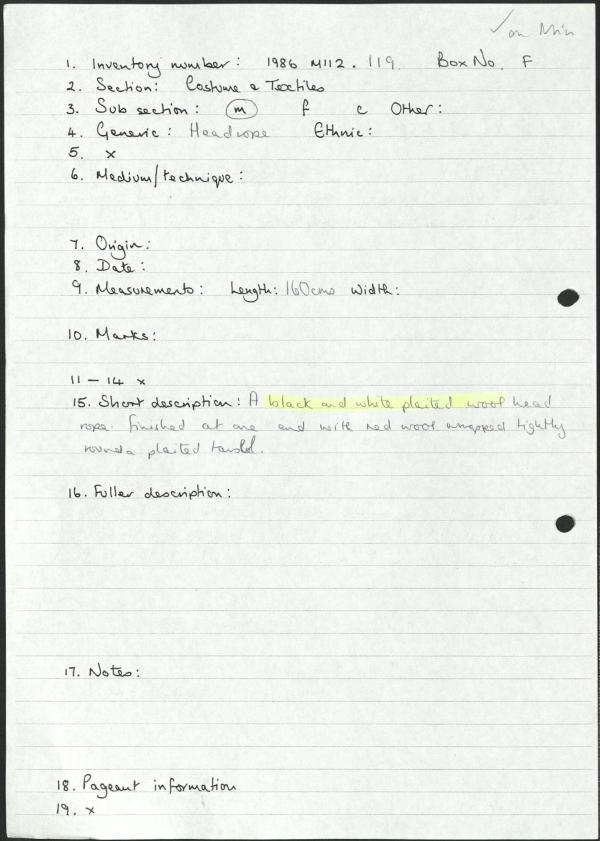 ✓ on Min
1. Inventory number: 1986 M112.119. Box No. F
2. Section: Costume & Textiles
3. Sub section: m f c Other:
4. Generic: Headrope Ethnic:
5. x
6. Medium/technique:
7. Origin:
8. Date:
9. Measurements: Length: 160cms Width:
10. Marks:
11 – 14 x
15. Short description: A black and white plaited wool head
rope. finished at one end with red wool wrapped tightly
round a plaited tassel.
16. Fuller description:
17. Notes:
18. Pageant information
19. x